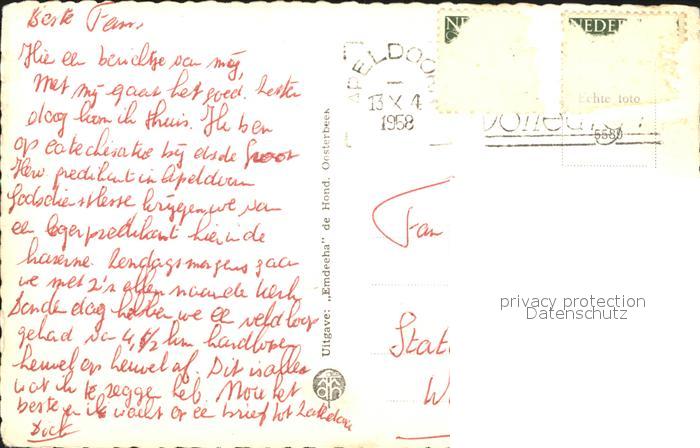 Beste Fam.
Hier een berichtje van mij,
Met mij gaat het goed. Zaterdag
kom ik thuis. Ik ben
op catechisatie bij ds de Groot
Herv predikant in Apeldoorn
Godsdienstlesse krijgen we van
een legerpredikant hier in de
kazerne. Zondagsmorgens gaan
we met z'n allen naar de kerk
Donderdag hebben we een veldloop
gehad van 4,5/2 km hardlopen
heuvel op heuvel af. Dit is alles
wat ik te zegge heb. Nou het
beste en ik wacht op een brief tot
Uitgave: „Emdeeha" de Hond, Oosterbeek
APELDOO
13 X 4
1958
NE
NEDER
Echte foto
5580
Fam
Stat
W
privacy protection
Datenschutz